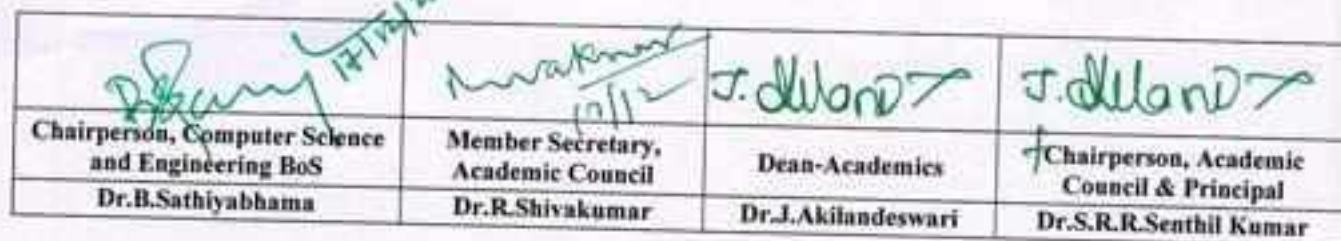 17/12/
17/12
J. Akiland
J. Akiland
Chairperson, Computer Science
and Engineering BoS
Member Secretary,
Academic Council
Dean-Academics
Chairperson, Academic
Council & Principal
Dr.B.Sathiyabhama
Dr.R.Shivakumar
Dr.J.Akilandeswari
Dr.S.R.R.Senthil Kumar